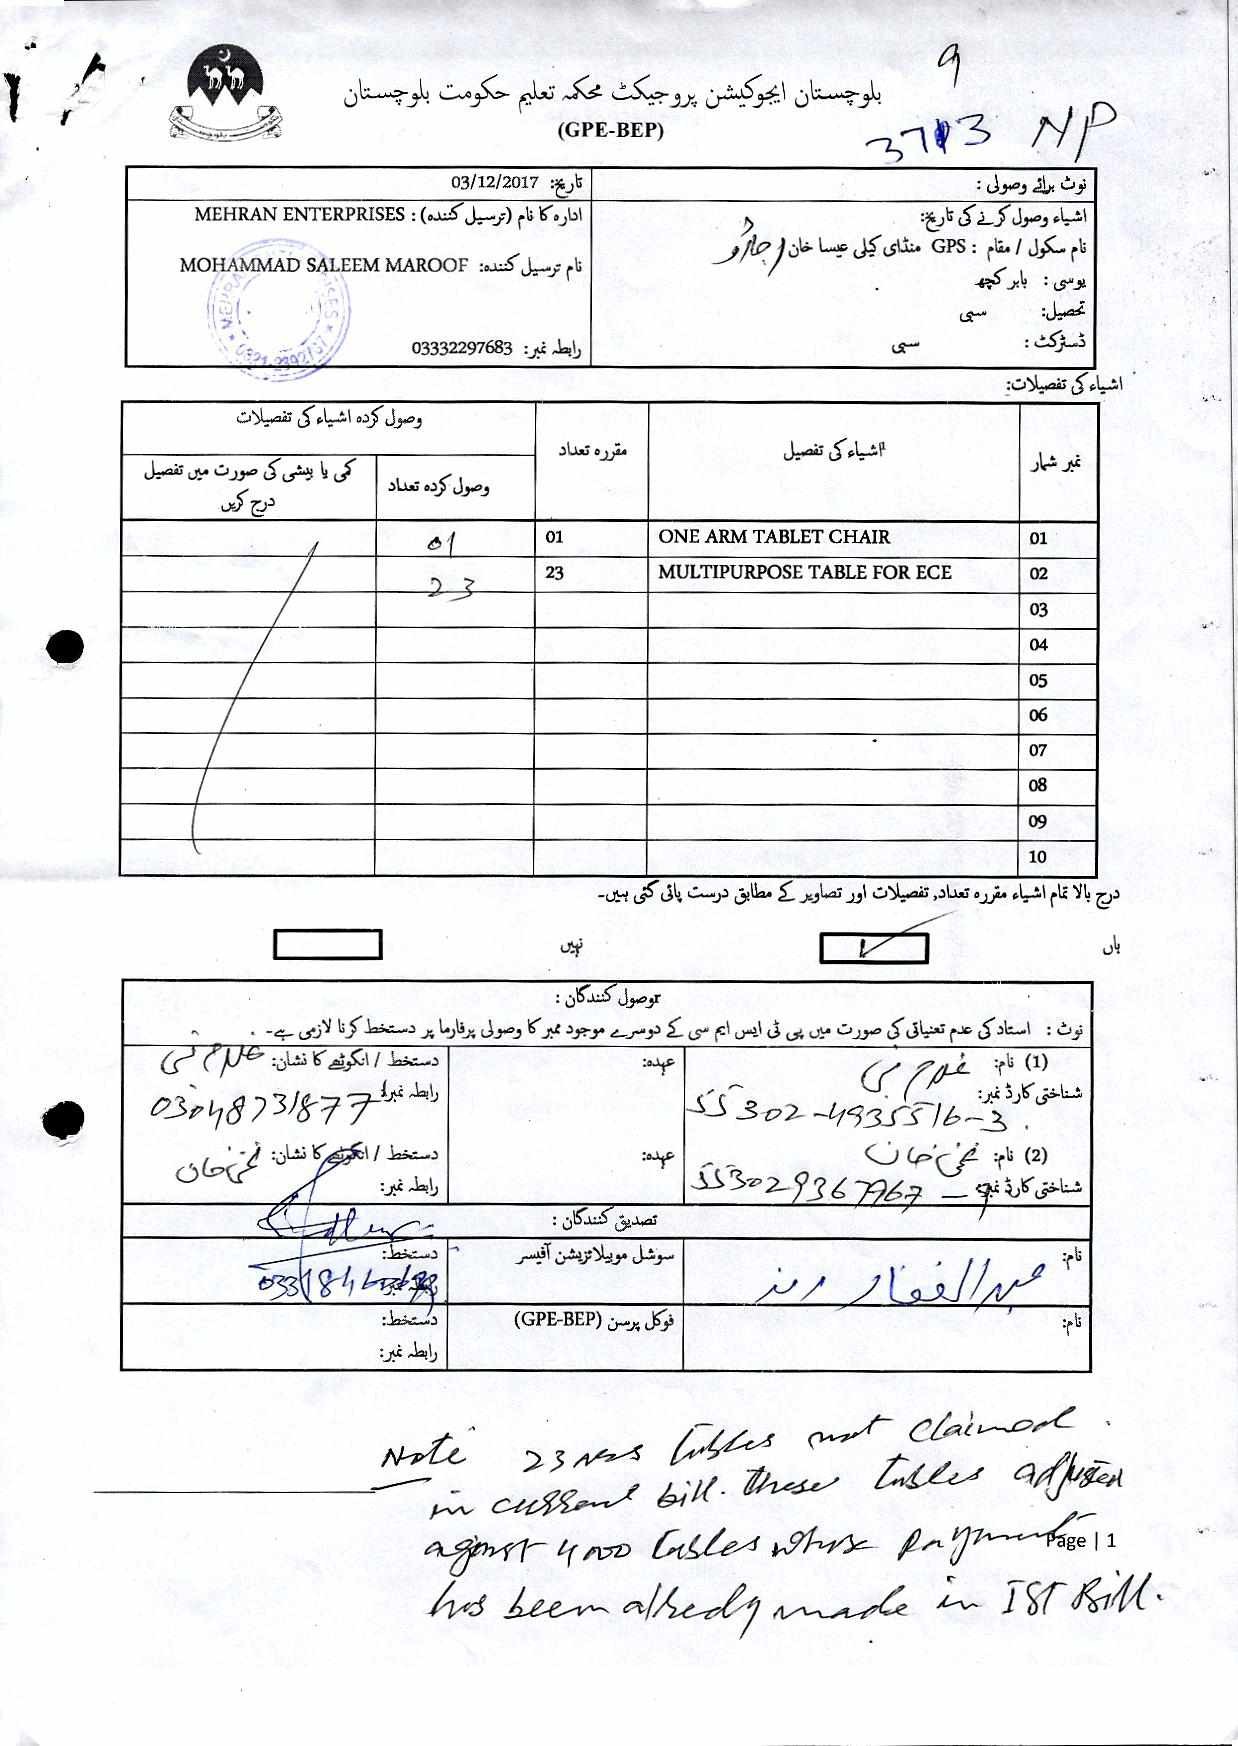 9
بلوچستان ایجوکیشن پروجیکٹ محکمہ تعلیم حکومت بلوچستان
(GPE-BEP)
3713 NP
نوٹ برائے وصولی :
تاریخ: 03/12/2017
اشیاء وصول کرنے کی تاریخ:
نام سکول / مقام : GPS منڈای کیلی عیسا خان
یو سی : بابر کچھ
تحصیل: سبی
ڈسٹرکٹ : سبی
ادارہ کا نام (ترسیل کنندہ) : MEHRAN ENTERPRISES
نام ترسیل کنندہ: MOHAMMAD SALEEM MAROOF
رابطہ نمبر: 03332297683
اشیاء کی تفصیلات:
نمبر شمار اشیاء کی تفصیل مقررہ تعداد وصول کردہ اشیاء کی تفصیلات
وصول کردہ تعداد کمی یا بیشی کی صورت میں تفصیل درج کریں
01 ONE ARM TABLET CHAIR 01 01
02 MULTIPURPOSE TABLE FOR ECE 23 23
03
04
05
06
07
08
09
10
درج بالا تمام اشیاء مقررہ تعداد, تفصیلات اور تصاویر کے مطابق درست پائی گئی ہیں۔
ہاں نہیں
وصول کنندگان :
نوٹ : استاد کی عدم تعنیاتی کی صورت میں پی ٹی ایس ایم سی کے دوسرے موجود ممبر کا وصولی پرفارما پر دستخط کرنا لازمی ہے۔
(1) نام: عہدہ: دستخط / انگوٹھے کا نشان:
شناختی کارڈ نمبر: 55302-4935516-3 رابطہ نمبر: 03048731877
(2) نام: غنی خان عہدہ: دستخط / انگوٹھے کا نشان: غنی خان
شناختی کارڈ نمبر: رابطہ نمبر:
تصدیق کنندگان :
نام: عبدالغفار رند سوشل موبیلائزیشن آفیسر دستخط:
رابطہ نمبر:
نام: فوکل پرسن (GPE-BEP) دستخط:
رابطہ نمبر:
Note 23 Nos tables not claimed.
in current bill. these tables adjusted
against 4000 tables whose payment
Page | 1
has been alredy made in IST Bill.